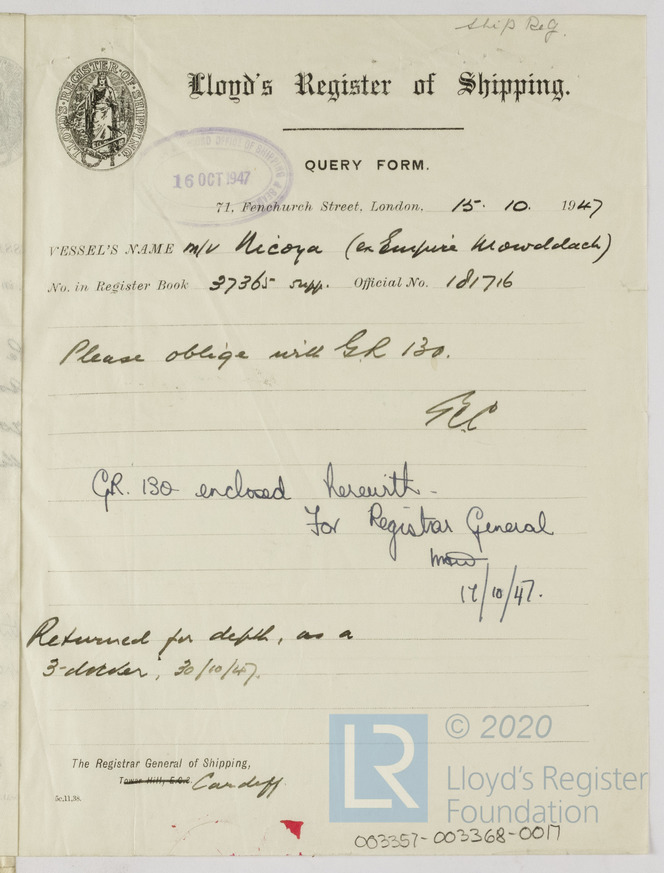 Ship Reg.
LLOYD'S REGISTER OF SHIPPING
Lloyd's Register of Shipping.
QUERY FORM.
16 OCT 1947
71, Fenchurch Street, London, 15. 10. 1947
VESSEL'S NAME m/v Nicoya (ex Empire Mowddach)
No. in Register Book 37365 supp. Official No. 181716
Please oblige with G.R 130.
GR. 130 enclosed herewith.
For Registrar General
17/10/47.
Returned for depth, as a
3-decker, 30/10/47.
The Registrar General of Shipping,
Tower Hill, E.C.3. Cardiff.
5c,11,38.
LR © 2020
Lloyd's Register
Foundation
003357-003368-0017